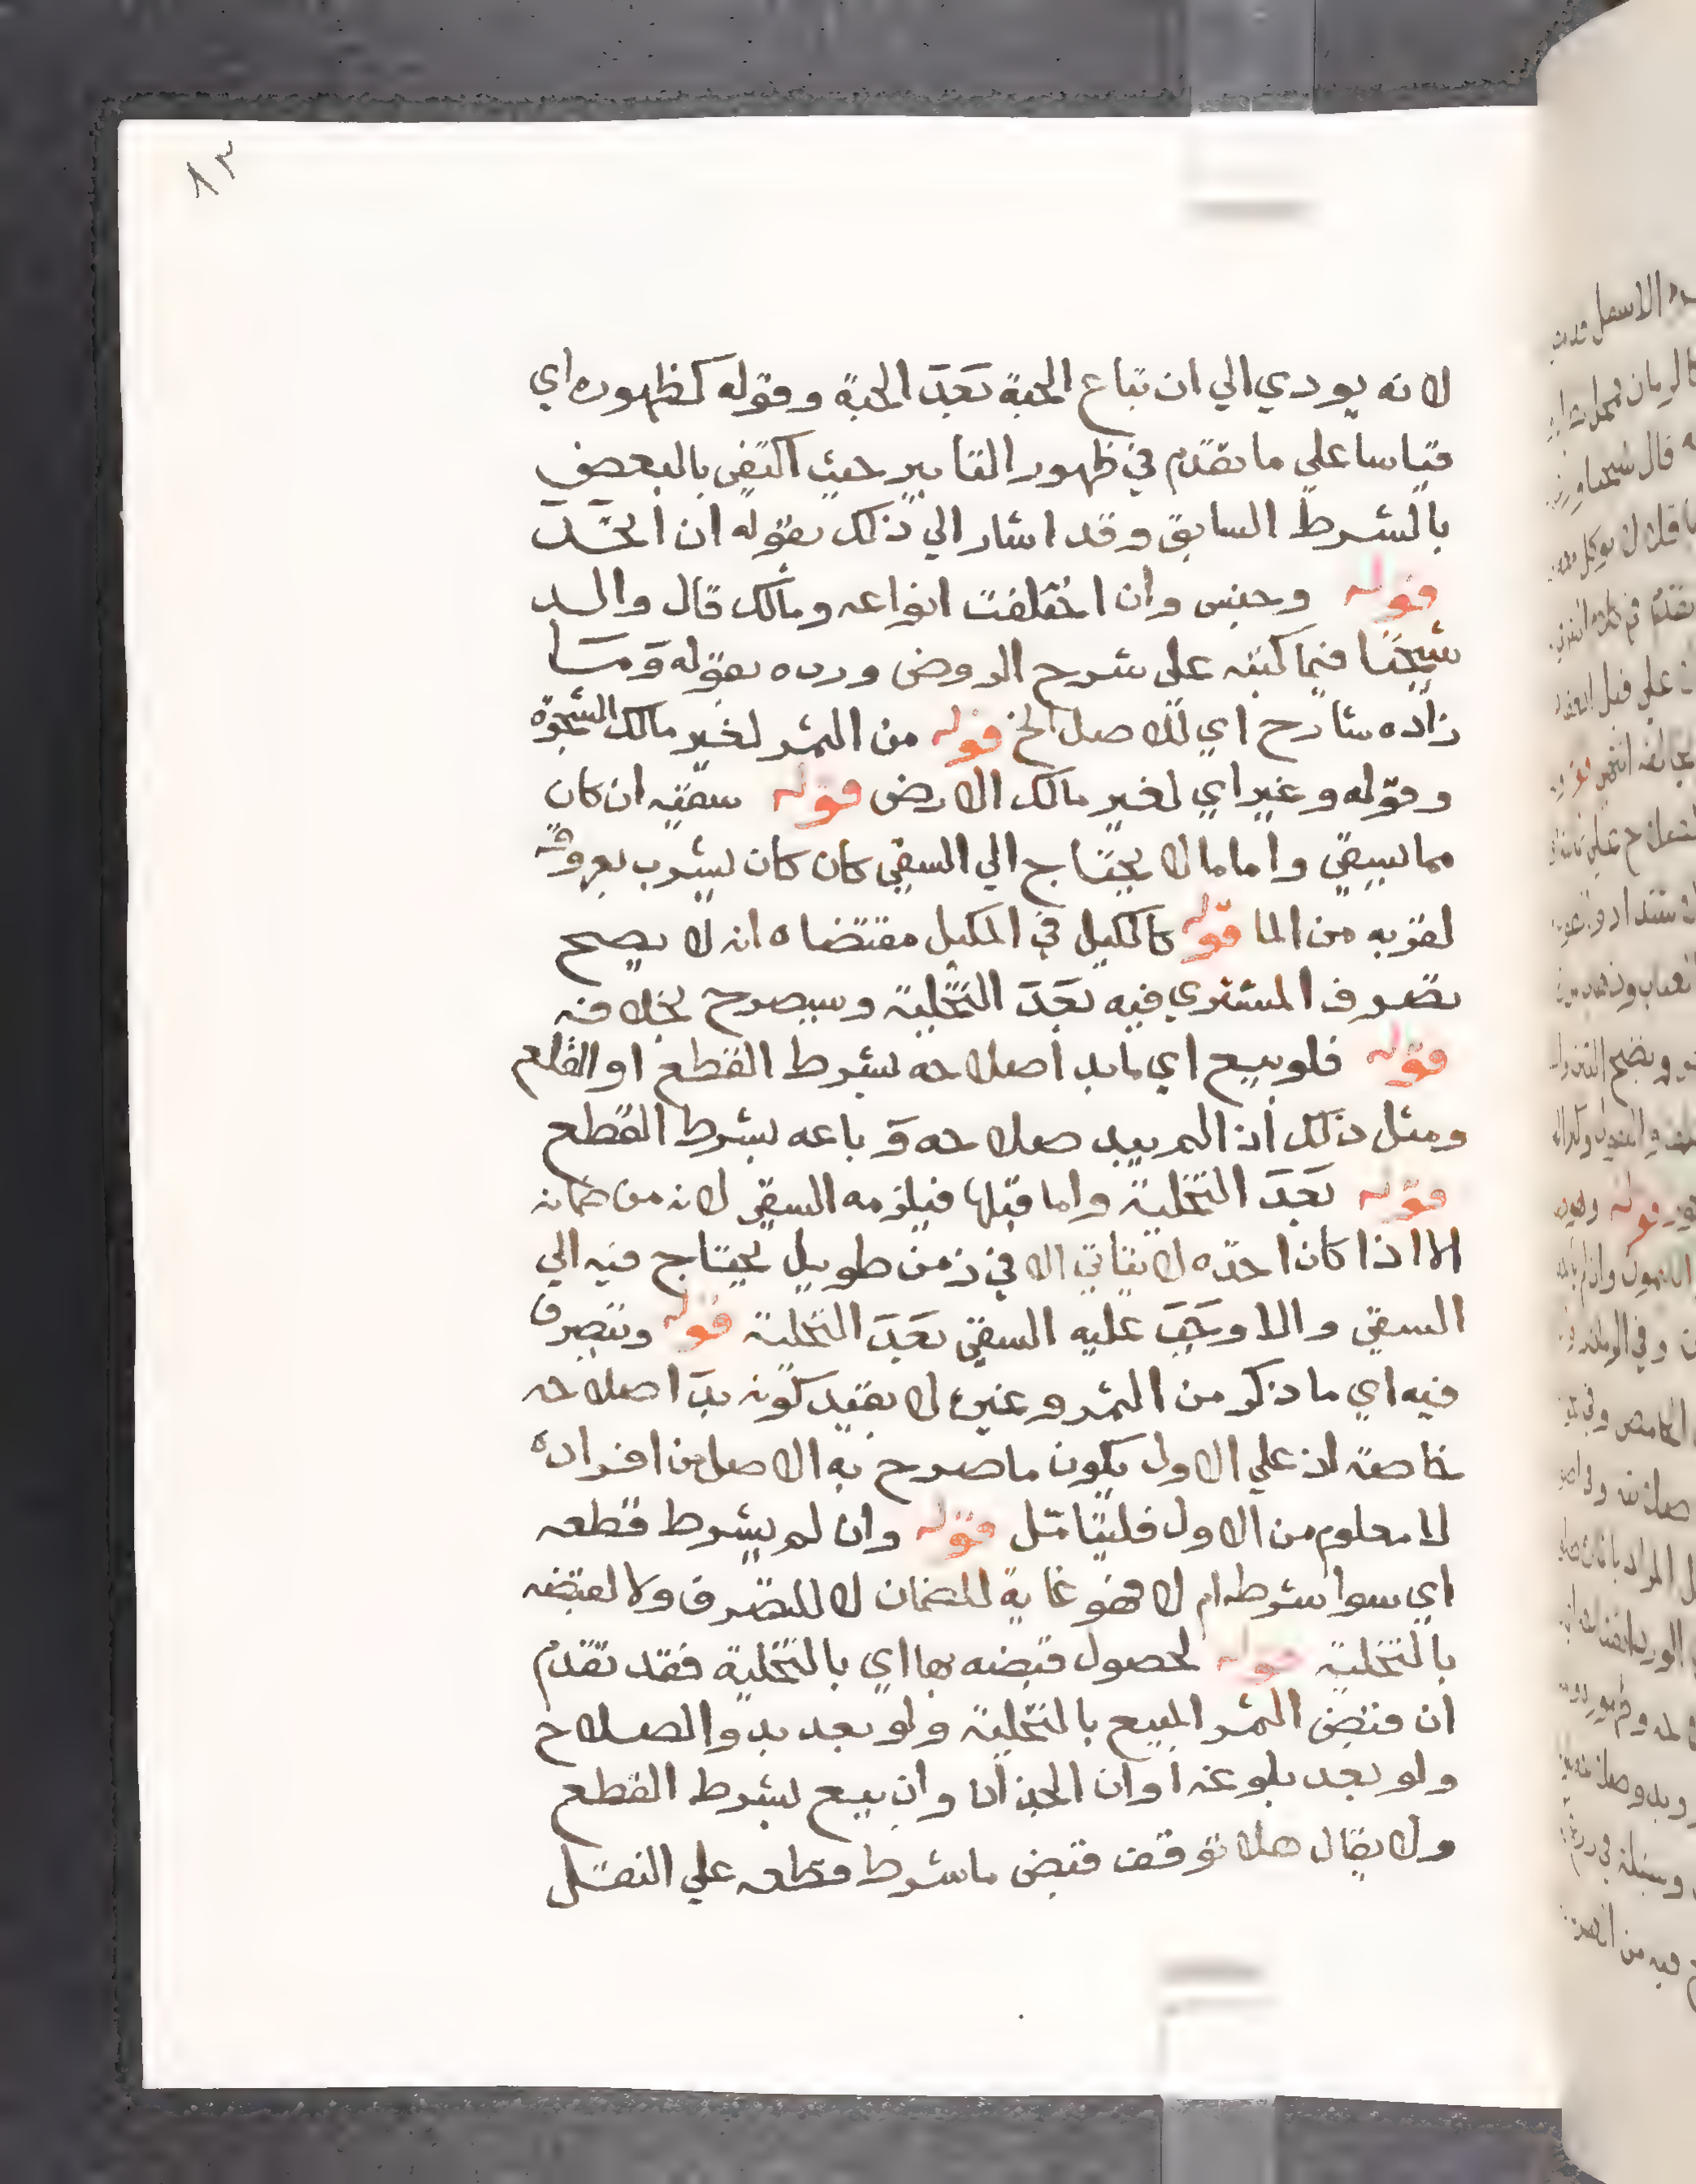 ٨٣
لانه يودي الي ان تباع الحبة بعد الحبة وقوله كظهوره اي
قياسا علي ما تقدم في ظهور التابير حيث اكتفي بالبعض
بالشرط السابق وقد اشار الي ذلك بقوله ان اتحد
قوله وجنس وان اختلفت انواعه ومالك قال والد
شيخنا فيما كتبه علي شرح الروض ورده بقوله وما
زاده شارح اي للاصل الخ قوله من الثمر لغير مالك الشجرة
وقوله وغير اي لغير مالك الارض قوله سقيه ان كان
مما يسقي واما ما لا يحتاج الي السقي كان كان يشرب بعروقه
لقربه من الما قوله كالكيل في المكيل مقتضاه انه لا يصح
تصرف المشتري فيه بعد التخلية وسيصرح بخلافه
قوله فلو بيع اي ما بدا صلاحه بشرط القطع او القلع
ومثل ذلك اذا لم يبد صلاحه و باعه بشرط القطع
قوله بعد التخلية واما قبلها فيلزمه السقي لانه من ضمانه
الا اذا كان اخذه لا يتاتي الا في زمن طويل يحتاج فيه الي
السقي والا وجب عليه السقي بعد التخلية قوله ويتصرف
فيه اي ما ذكر من الثمر وغيره لا بقيد كونه بدا صلاحه
خاصة اذ علي الاول يكون ما صرح به الاصل من افراده
لا معلوم من الاول فليتامل قوله وان لم يشرط قطعه
اي سوا شرطه ام لا فهو غاية للضمان لا للتصرف ولا لقبضه
بالتخلية قوله لحصول قبضه بها اي بالتخلية فقد تقدم
ان قبض الثمر المبيع بالتخلية ولو بعد بدو الصلاح
ولو بعد بلوغه اوان الجذاذ وان بيع بشرط القطع
ولا يقال هلا توقف قبض ما شرط قطعه علي النقل